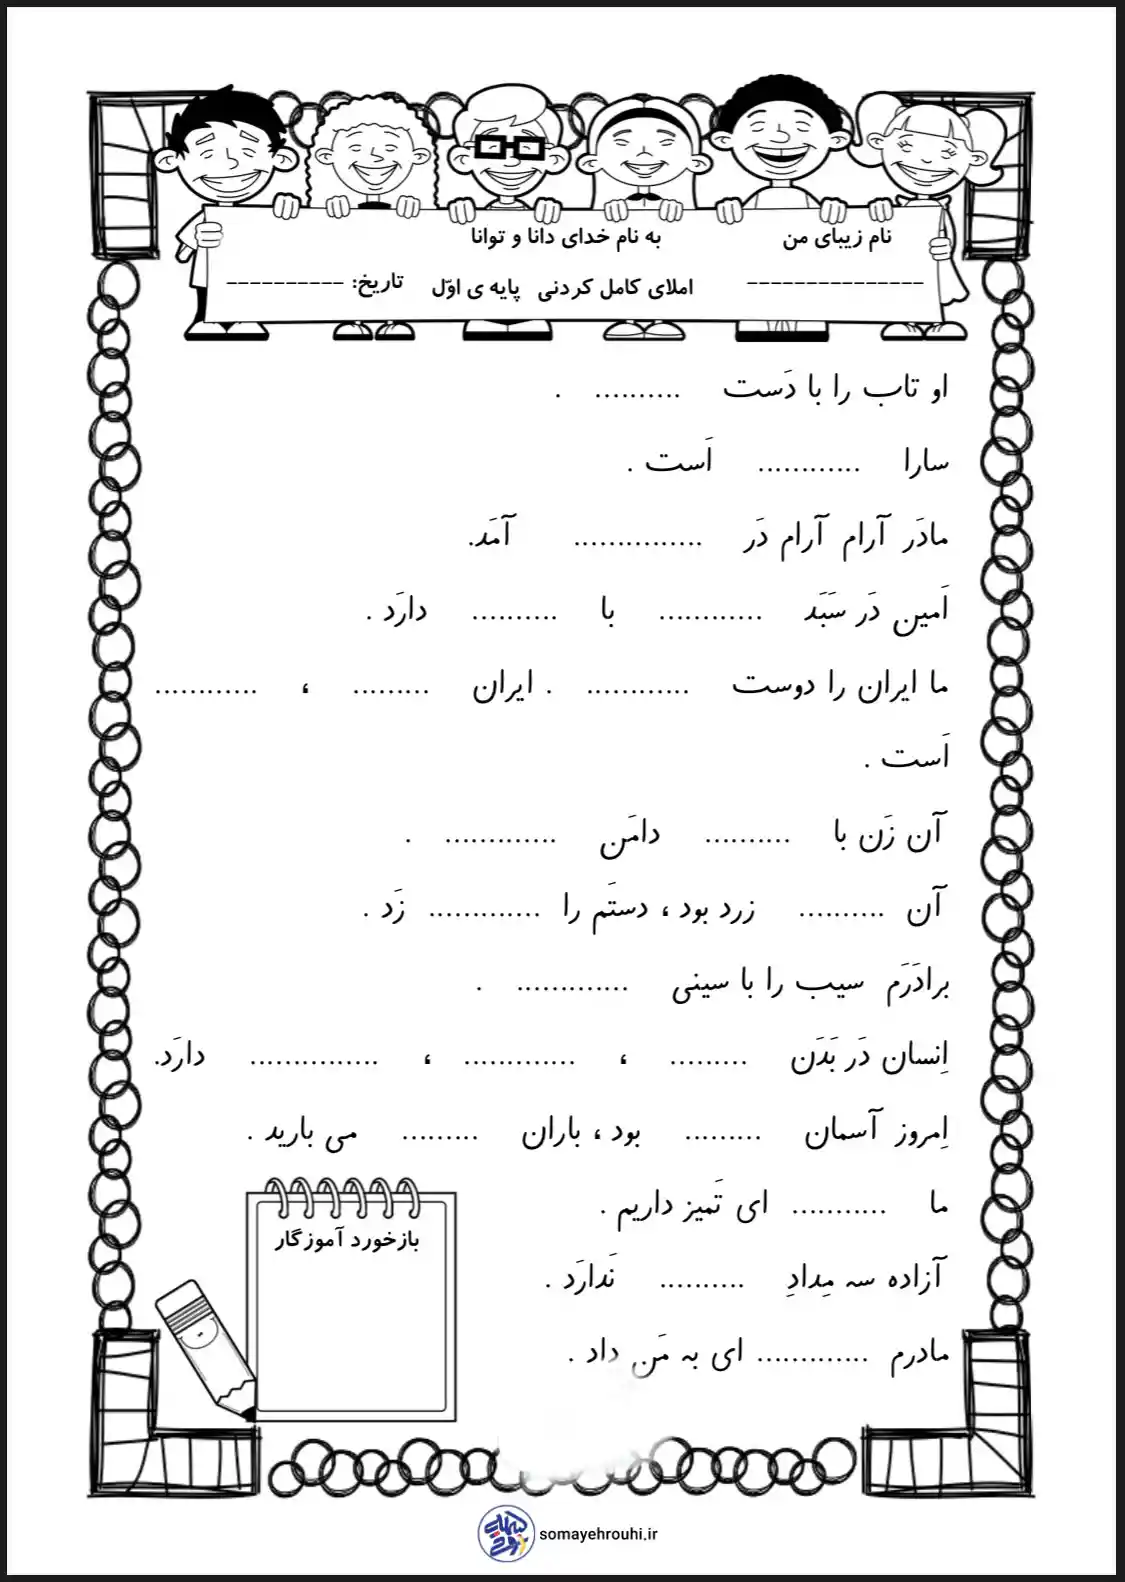 نام زیبای من
به نام خدای دانا و توانا
---------------
املای کامل کردنی پایه ی اوّل
تاریخ: ----------
او تاب را با دَست .......... .
سارا ............ اَست .
مادَر آرام آرام دَر ............... آمَد.
اَمین دَر سَبَد ............ با .......... دارَد .
ما ایران را دوست ............ . ایران ......... ، ............
اَست .
آن زَن با .......... دامَن ............. .
آن .......... زرد بود ، دستَم را ............. زَد .
برادَرَم سیب را با سینی ............. .
اِنسان دَر بَدَن ......... ، ............. ، ............... دارَد.
اِمروز آسمان ......... بود ، باران ......... می بارید .
ما ........... ای تَمیز داریم .
آزاده سه مِدادِ .......... نَدارَد .
مادرم ............. ای به مَن داد .
بازخورد آموزگار
somayehrouhi.ir